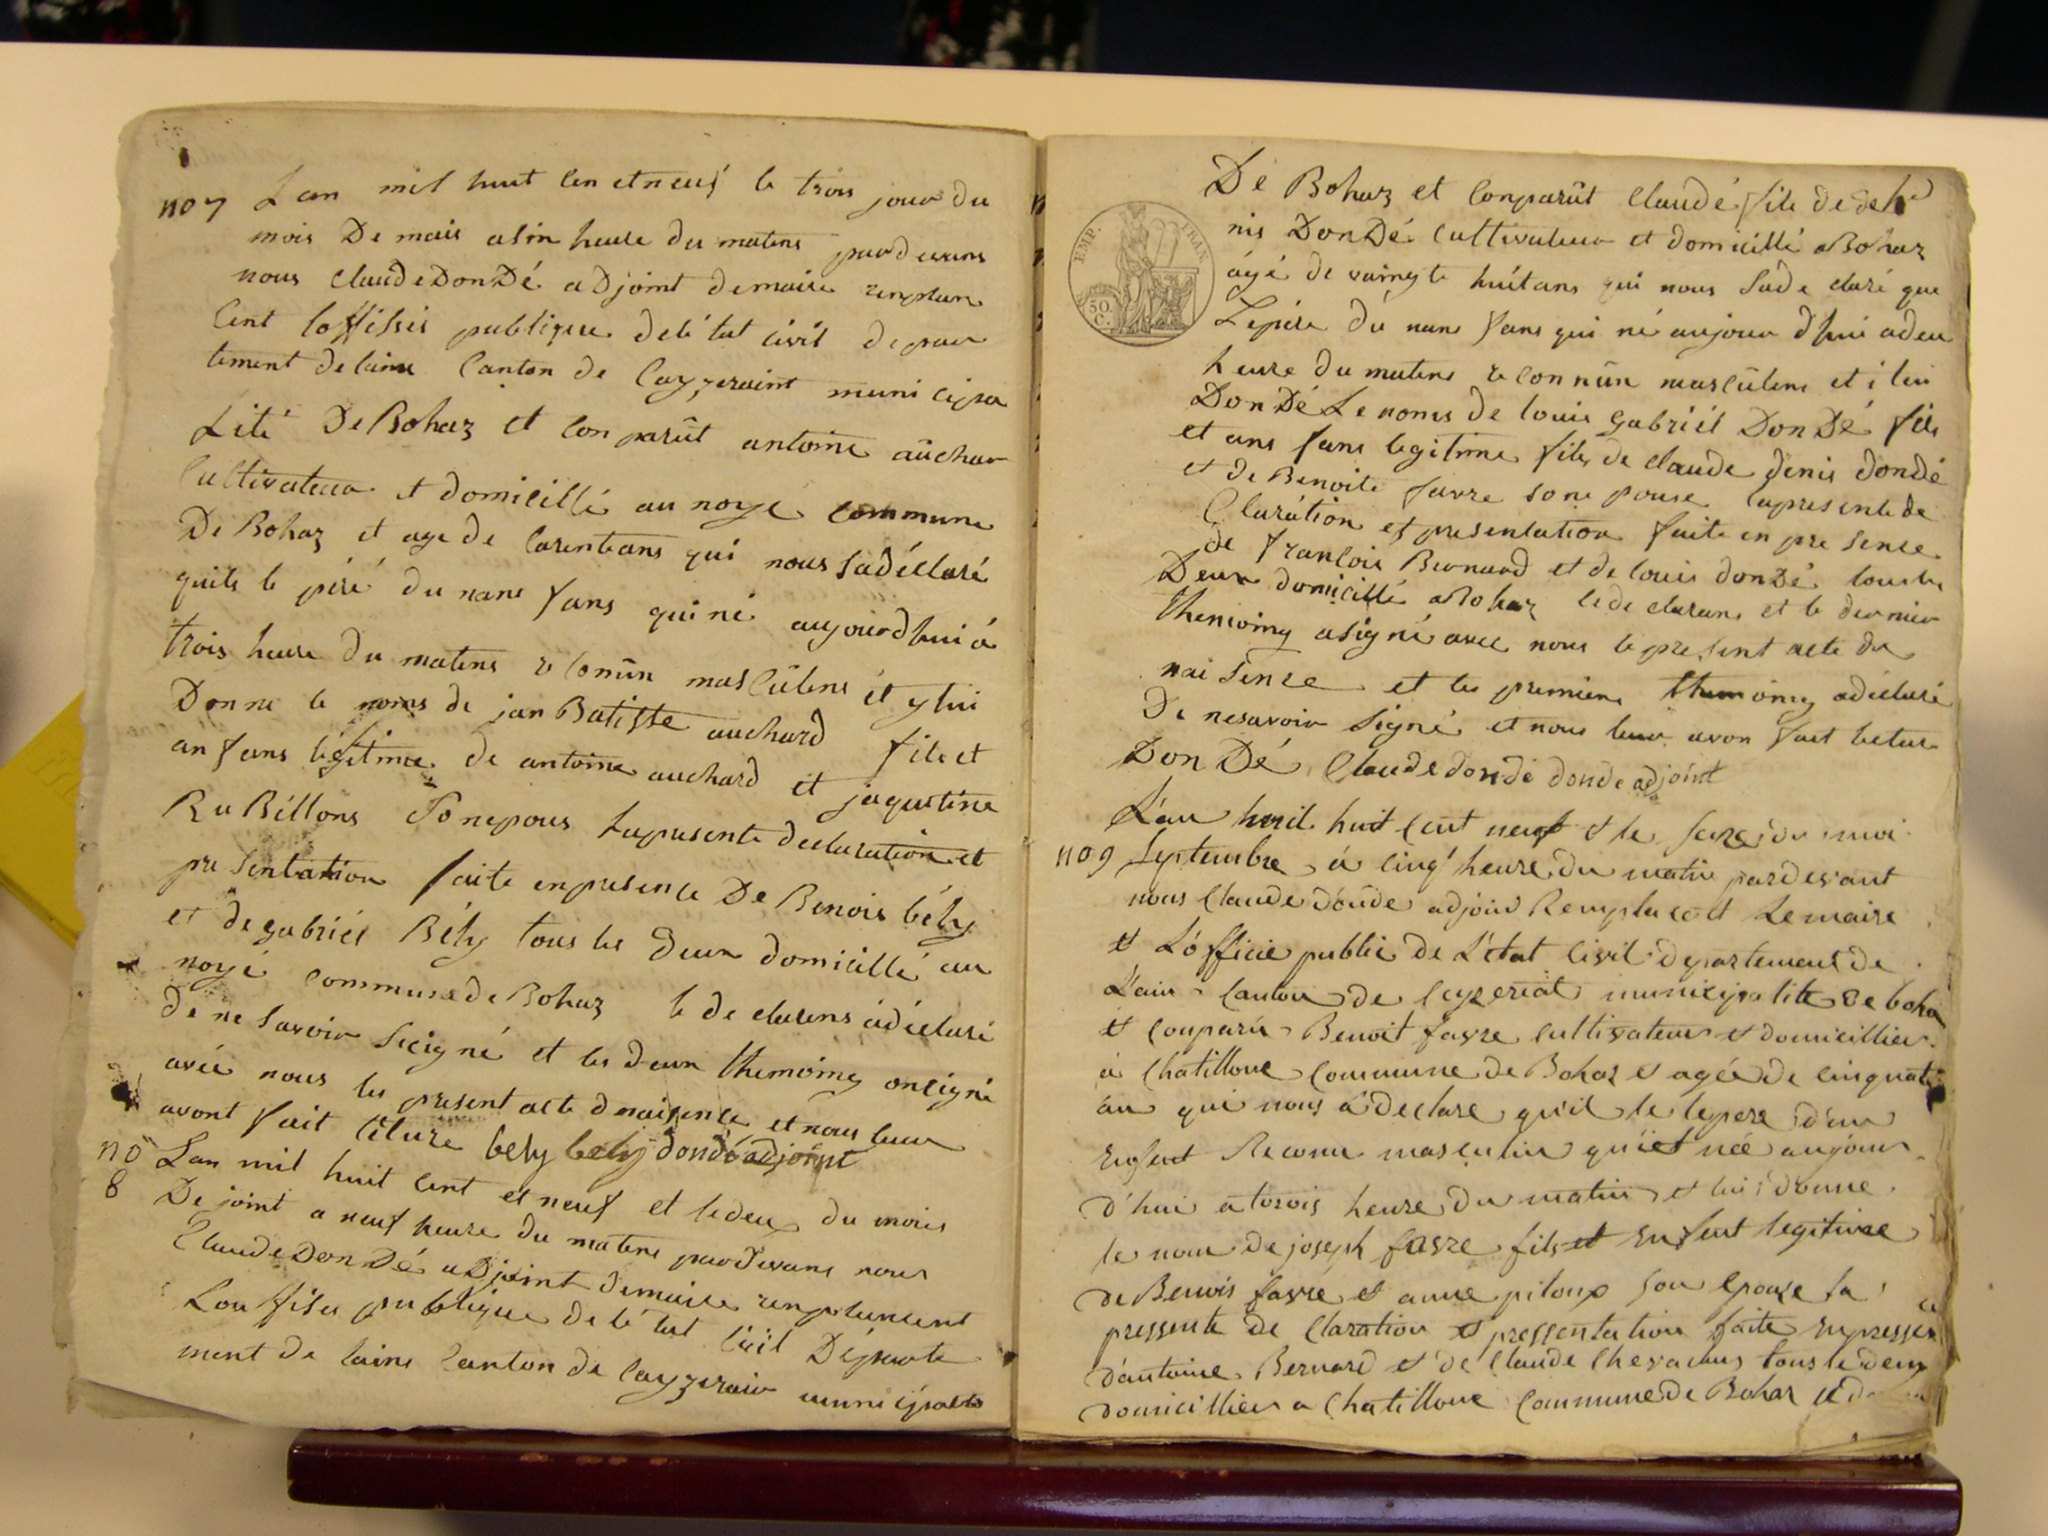 no 7 Lan mil huit cen et neuf le trois jour du
mois De mais a sin heure du matens pardevans
nous claude DonDé aDjoint demaire remplan
cent loffissié publique delétat civil depar
tement delain Canton de Cayzeraint municipa
Lité De Bohaz et Conparût antoine aûchar
Cultivateur et domicillé au noyé commune
De Bohaz et age de Carenteans qui nous sadéclaré
quile le péré du nans fans qui né aujourdhui à
trois heure Du matens reconnûn masCûlens et y lui
Donne le noms de jan Batiste auchard fils et
an fans légitime de antoine auchard et jaquestine
RuBillons Sonepous La presente declaration et
presentation faite enpresence De Benois bély
et de gabriél Bély tous les Deux domicillé au
noyé commune de Bohaz le declarens adéclaré
de ne savoir Seigné et les deux themoing onseigné
avéc nous les present acte denaisence et nous leur
avont fait léture bely bely dondé adjoint
no 8 Lan mil huit cent et neuf et ledeux du mois
De joint a neuf heure du matens pardevans nous
Claude DonDé aDjoint demaire remplancent
Loufisié publique de létat Civil Départe
ment de lains Canton de Cayzerair municipalité
De Bohaz et Conparût Claudé file de de
nis DonDé Cultivateur et domicillé aBohaz
âgé de vaingte huitans qui nous Sade claré que
Lepére du nans fans qui né aujour dhui adeu
heure du matens reconnûn mascûlens et i lui
DonDé Le noms de louis gabriél DonDé fils
et ans fans legitime fils de claude denis dondé
et de Benoite favre sone pouse lapresente de
Claration et presentation faite en pre sense
de françois Bernard et de louis donDé tous les
Deux domicillé a Bohaz le de clarans et le dernier
themoing asigné avec nous le present acte de
nai senze et les premiere themoing adéclaré
De nesavoir Signé et nous leur avon fait leture
DonDé Claude dondé donde adjoint
L'an huil huit Cent neuf et le seize du moi
no 9 Septembre à cinq heure du matin pardevant
nous Claude dondé adjoind Remplacet Le maire
et Lófficié public de L'état Civil departement de
L'ain Canton de Ceyzeriat municipalite de boha
et Conparu Benoit favre cultivateur et domicillier
a Chatilloue Commune de Bohaz et agée de cinquate
an qui nous a declare quil le lepere d'un
Enfent Reconu masculin quiet néé aujour
d'hui a trois heure du matin et lui donne
le nom de joseph favre fils et Enfent legitime
de Benois favre et anne pitoux son épouse la
pressente de Claration et pressentation faite Enpressen ce
d'antoine Bernard et de Claude Chevachus tous le deux
domicillier a Chatilloue Commune de Bohaz
EMP. FRAN.
50 C.